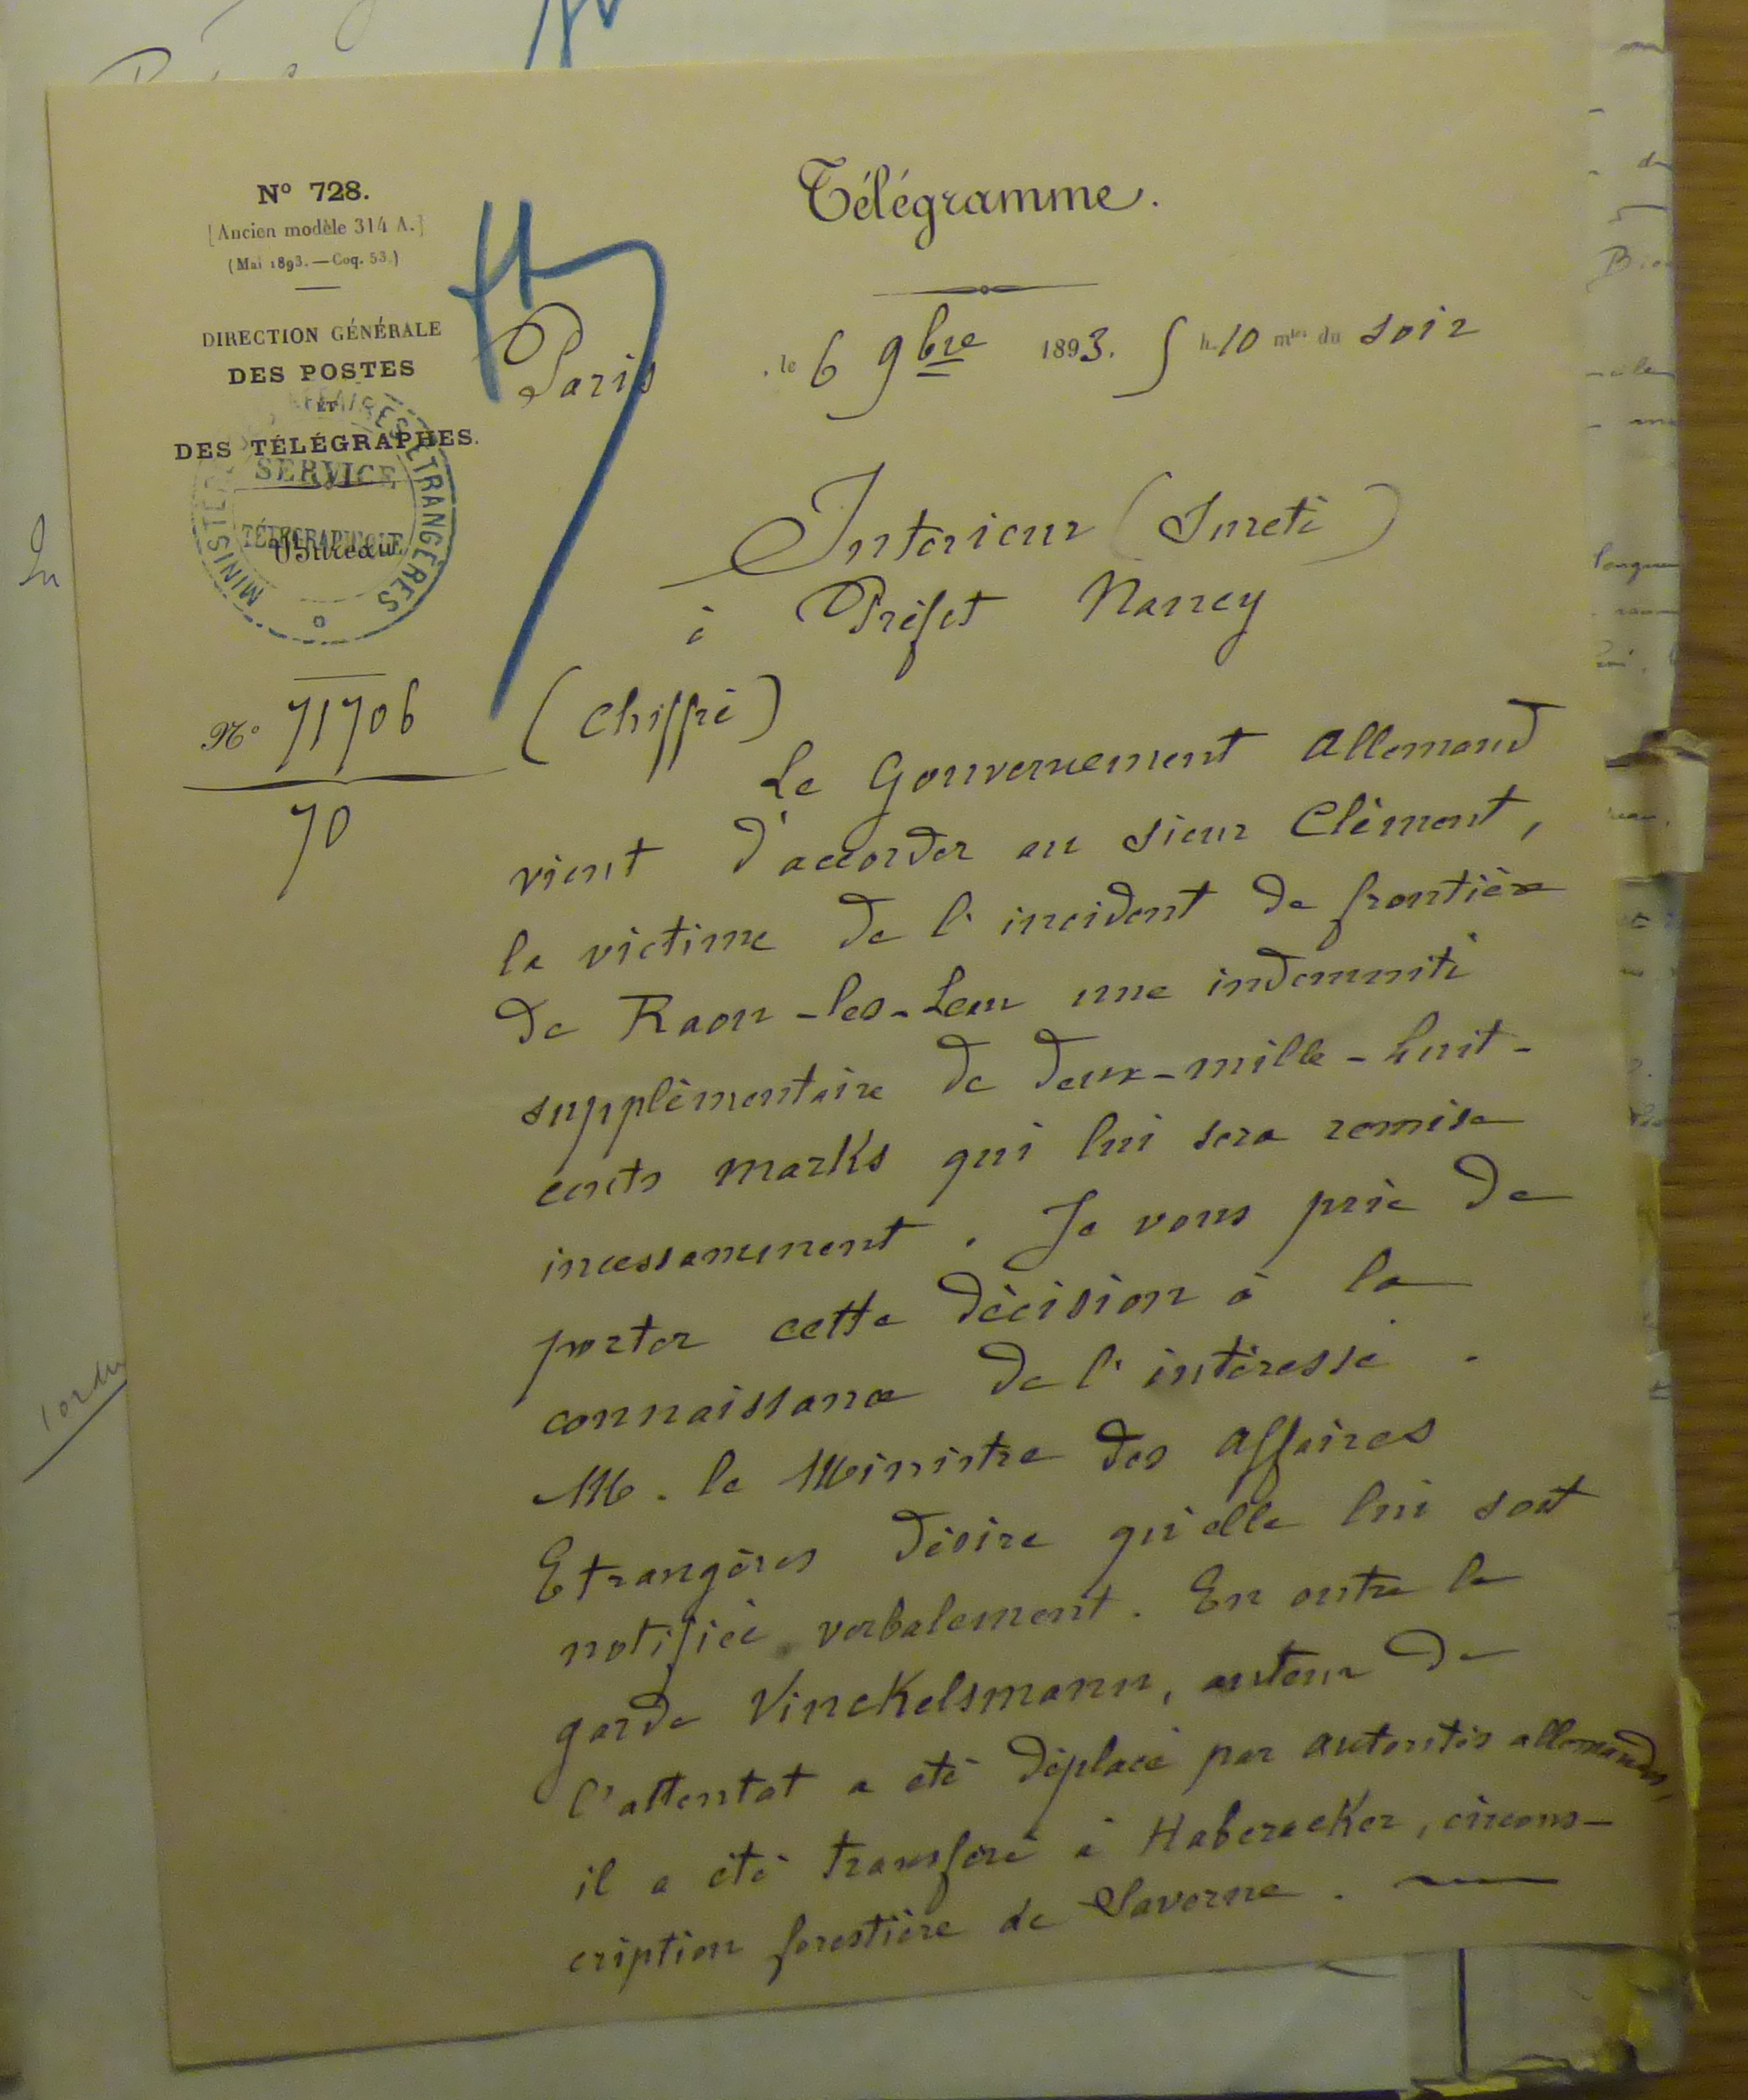 Nº 728.
[Ancien modèle 314 A.]
(Mai 1893. — Coq. 53.)
DIRECTION GÉNÉRALE
DES POSTES
ET
DES TÉLÉGRAPHES.
MINISTÈRE DES AFFAIRES ETRANGÈRES
SERVICE
TÉLÉGRAPHIQUE
Bureau
Nº 71706
70
Télégramme.
Paris, le 6 9bre 1893. 5 h. 10 mtes du soir
Intérieur (Sureté)
à Préfet Nancy
(Chiffré)
Le Gouvernement allemand
vient d'accorder au sieur Clément,
la victime de l'incident de frontière
de Raon-les-Leau une indemnité
supplémentaire de deux-mille-huit-
cents marks qui lui sera remise
incessamment. Je vous prie de
porter cette décision à la
connaissance de l'intéressé.
M. le Ministre des affaires
Etrangères désire qu'elle lui soit
notifiée verbalement. En outre le
garde Vinckelsmann, auteur de
l'attentat a été déplacé par autorités allemandes,
il a été transféré à Haberacker, circons-
cription forestière de Saverne.